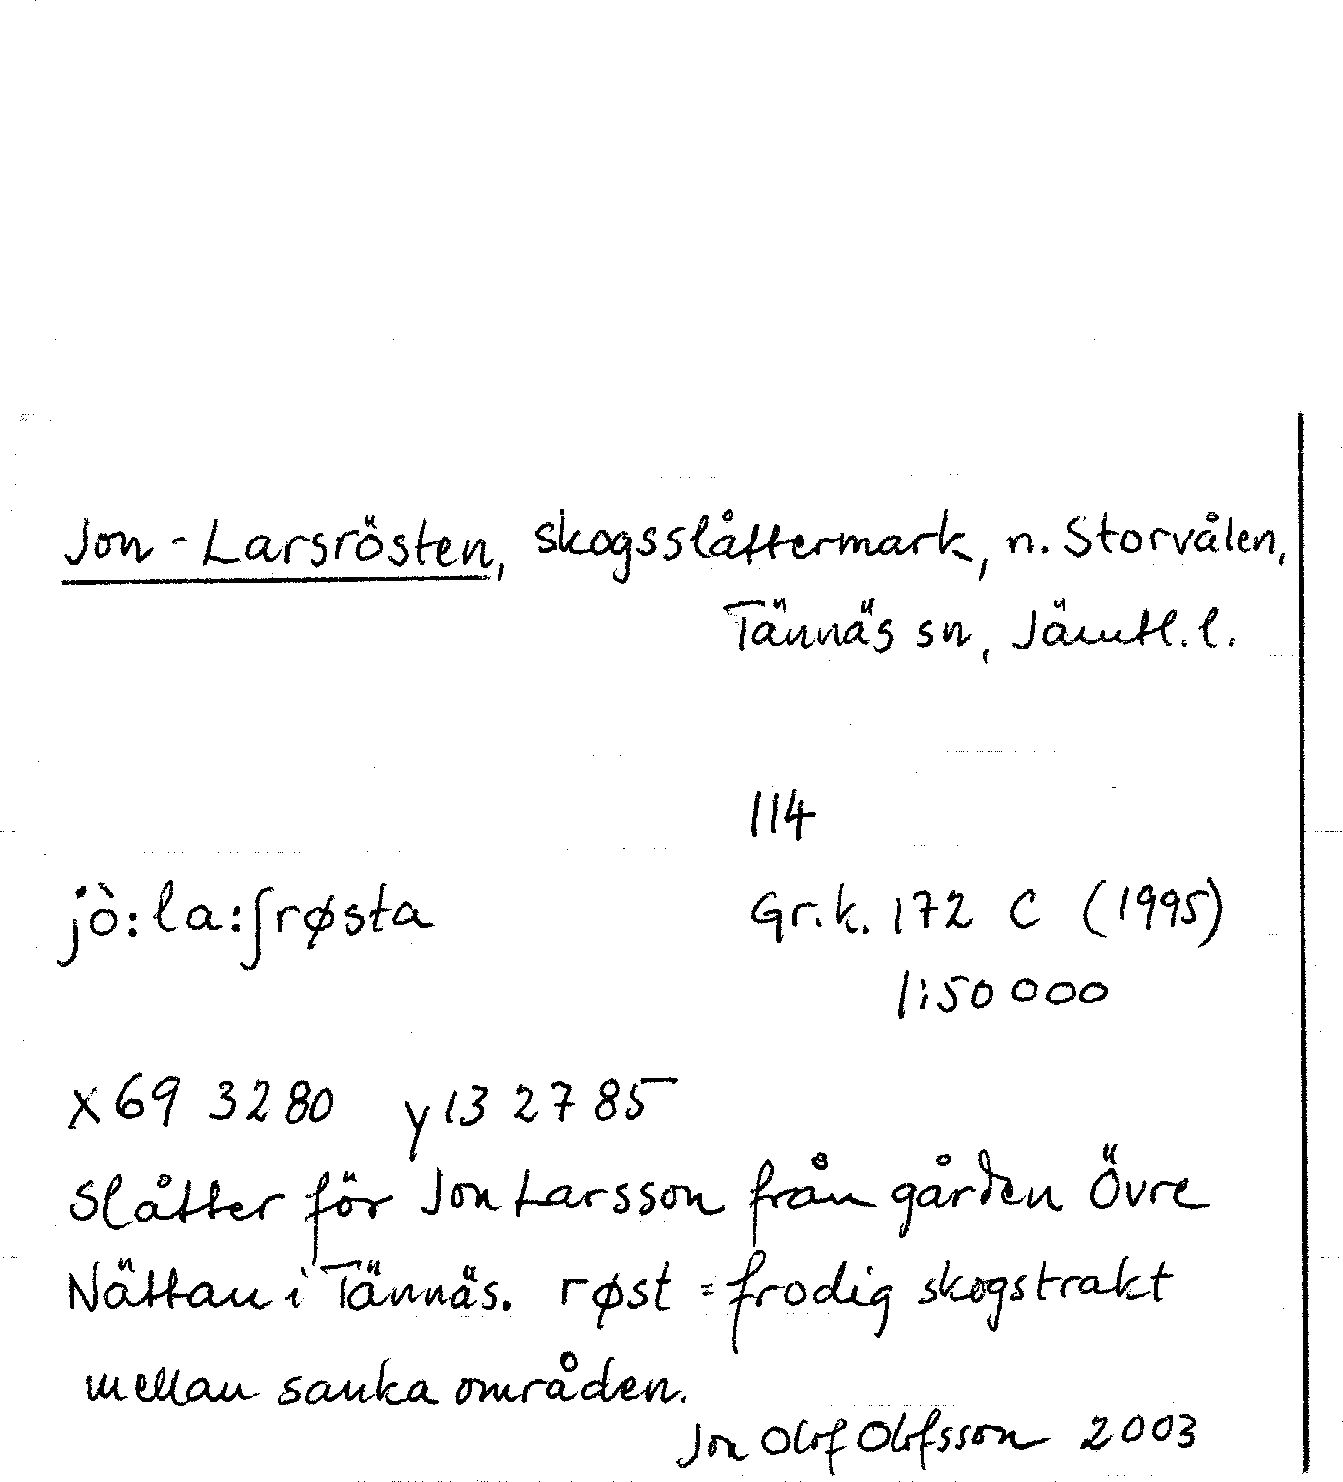 Jon-Larsrösten, skogsslåttermark, n. Storvålen,
Tännäs sn, Jämtl. l.
114
jò:la:ʃrøsta
Gr.k. 172 C (1995)
1:50 000
x 69 3280 y 13 27 85
Slåtter för Jon Larsson från gården Övre
Nättan i Tännäs. røst = frodig skogstrakt
mellan sanka områden.
Jon Olof Olofsson 2003